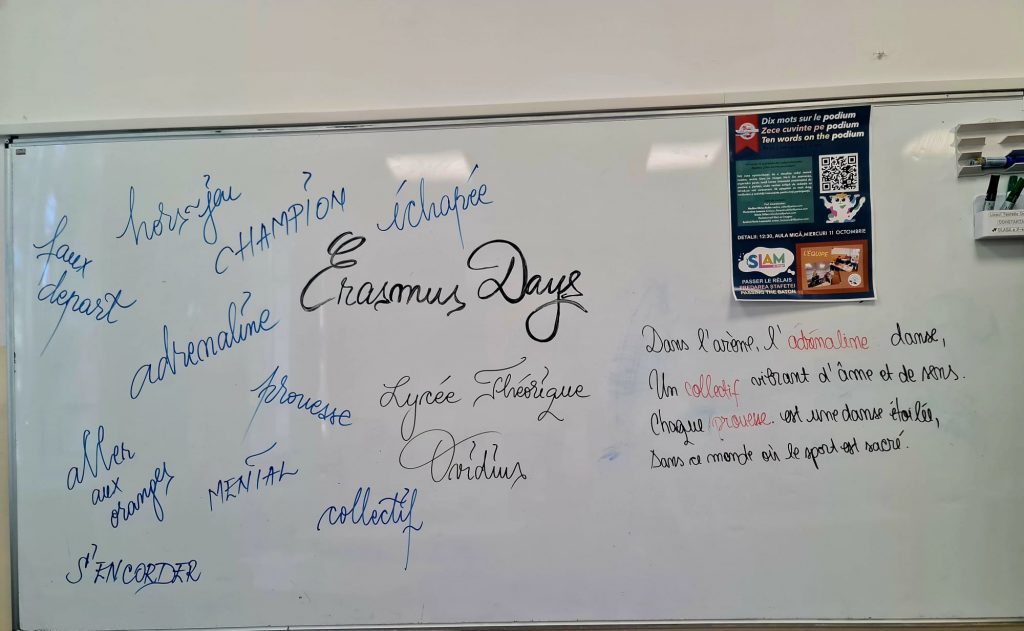 hors-jeu
CHAMPION
échapée
faux
depart
Erasmus Days
adrenaline
prouesse
Lycée Théorique
Ovidius
aller
aux
oranges
MENTAL
collectif
S'ENCORDER
Dix mots sur le podium
Zece cuvinte pe podium
Ten words on the podium
DETALII: 12:30, AULA MICĂ, MIERCURI 11 OCTOMBRIE
SLAM
L'EQUIPE
PASSER LE RELAIS
PREDAREA STAFETEI
PASSING THE BATON
Dans l'arène, l'adrénaline danse,
Un collectif vibrant d'âme et de sens.
Chaque prouesse est une danse étoilée,
Dans ce monde où le sport est sacré.